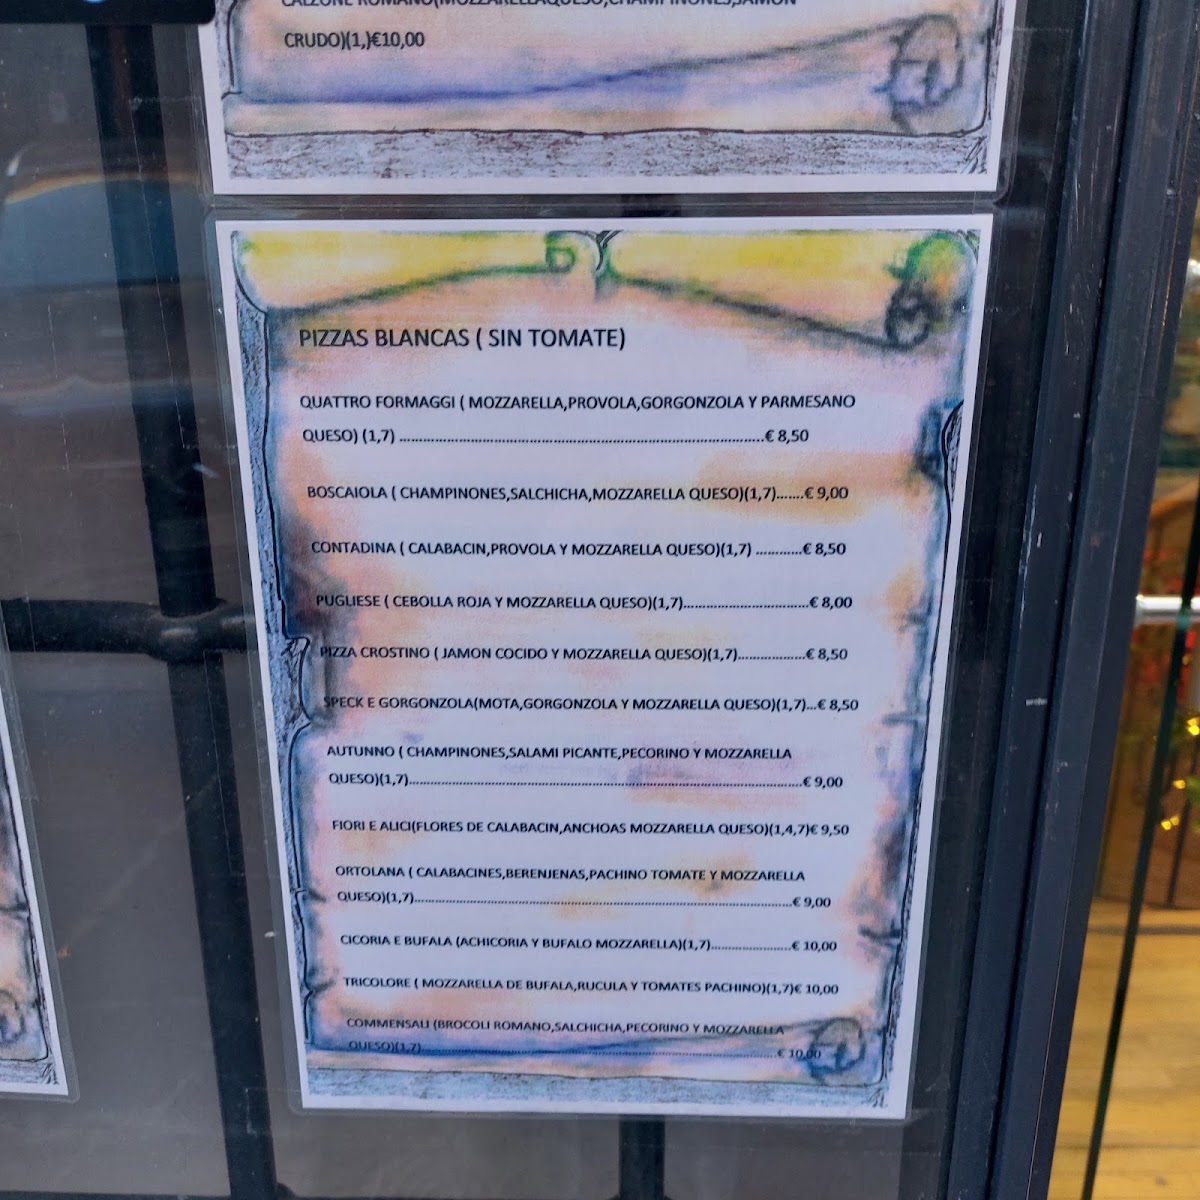 CALZONE ROMANO(MOZZARELLAQUESO,CHAMPINONES,JAMON
CRUDO)(1,)€10,00
PIZZAS BLANCAS ( SIN TOMATE)
QUATTRO FORMAGGI ( MOZZARELLA,PROVOLA,GORGONZOLA Y PARMESANO
QUESO) (1,7) ......................................................................................€ 8,50
BOSCAIOLA ( CHAMPINONES,SALCHICHA,MOZZARELLA QUESO)(1,7).......€ 9,00
CONTADINA ( CALABACIN,PROVOLA Y MOZZARELLA QUESO)(1,7) ............€ 8,50
PUGLIESE ( CEBOLLA ROJA Y MOZZARELLA QUESO)(1,7)................................€ 8,00
PIZZA CROSTINO ( JAMON COCIDO Y MOZZARELLA QUESO)(1,7)..................€ 8,50
SPECK E GORGONZOLA(MOTA,GORGONZOLA Y MOZZARELLA QUESO)(1,7)...€ 8,50
AUTUNNO ( CHAMPINONES,SALAMI PICANTE,PECORINO Y MOZZARELLA
QUESO)(1,7)......................................................................................................€ 9,00
FIORI E ALICI(FLORES DE CALABACIN,ANCHOAS MOZZARELLA QUESO)(1,4,7)€ 9,50
ORTOLANA ( CALABACINES,BERENJENAS,PACHINO TOMATE Y MOZZARELLA
QUESO)(1,7)......................................................................................................€ 9,00
CICORIA E BUFALA (ACHICORIA Y BUFALO MOZZARELLA)(1,7).......................€ 10,00
TRICOLORE ( MOZZARELLA DE BUFALA,RUCULA Y TOMATES PACHINO)(1,7)€ 10,00
COMMENSALI (BROCOLI ROMANO,SALCHICHA,PECORINO Y MOZZARELLA
QUESO)(1,7)......................................................................................................€ 10,00